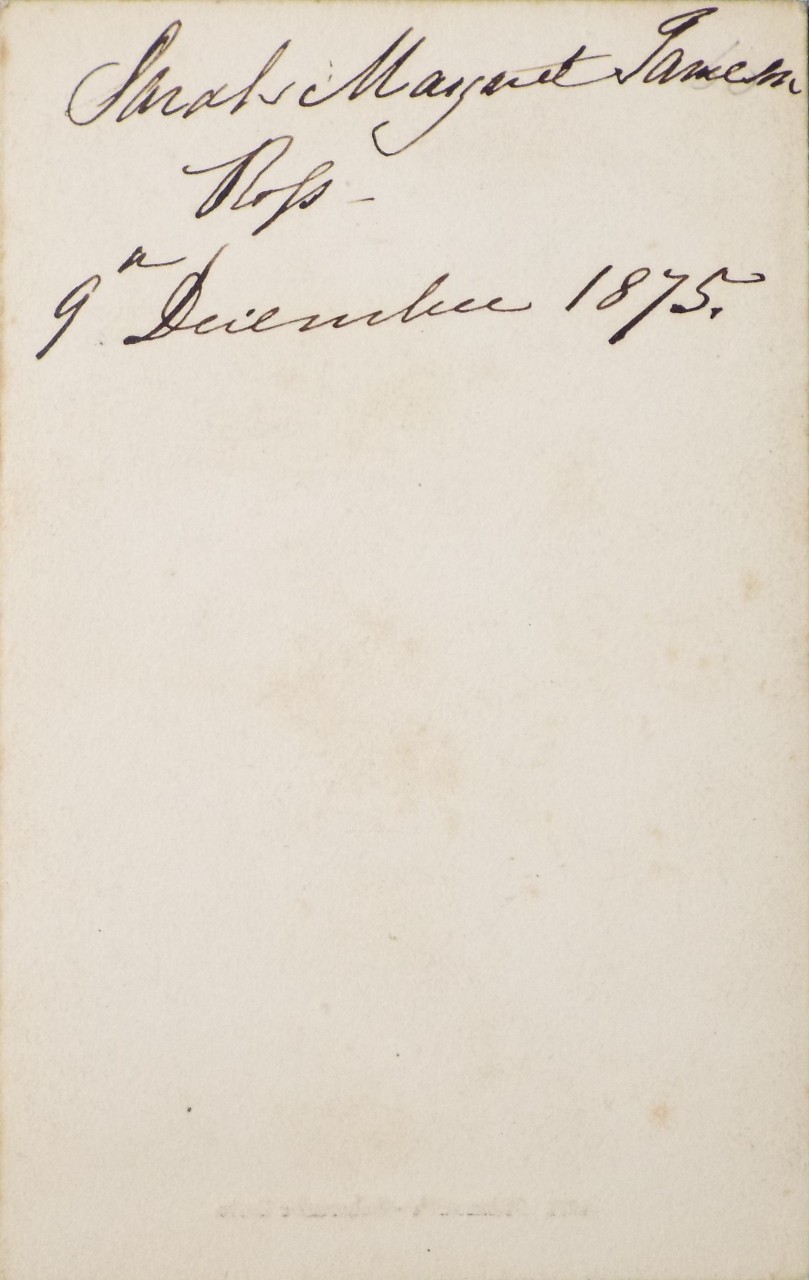 Sarah Margaret Jameson
Ross -
9th December 1875.